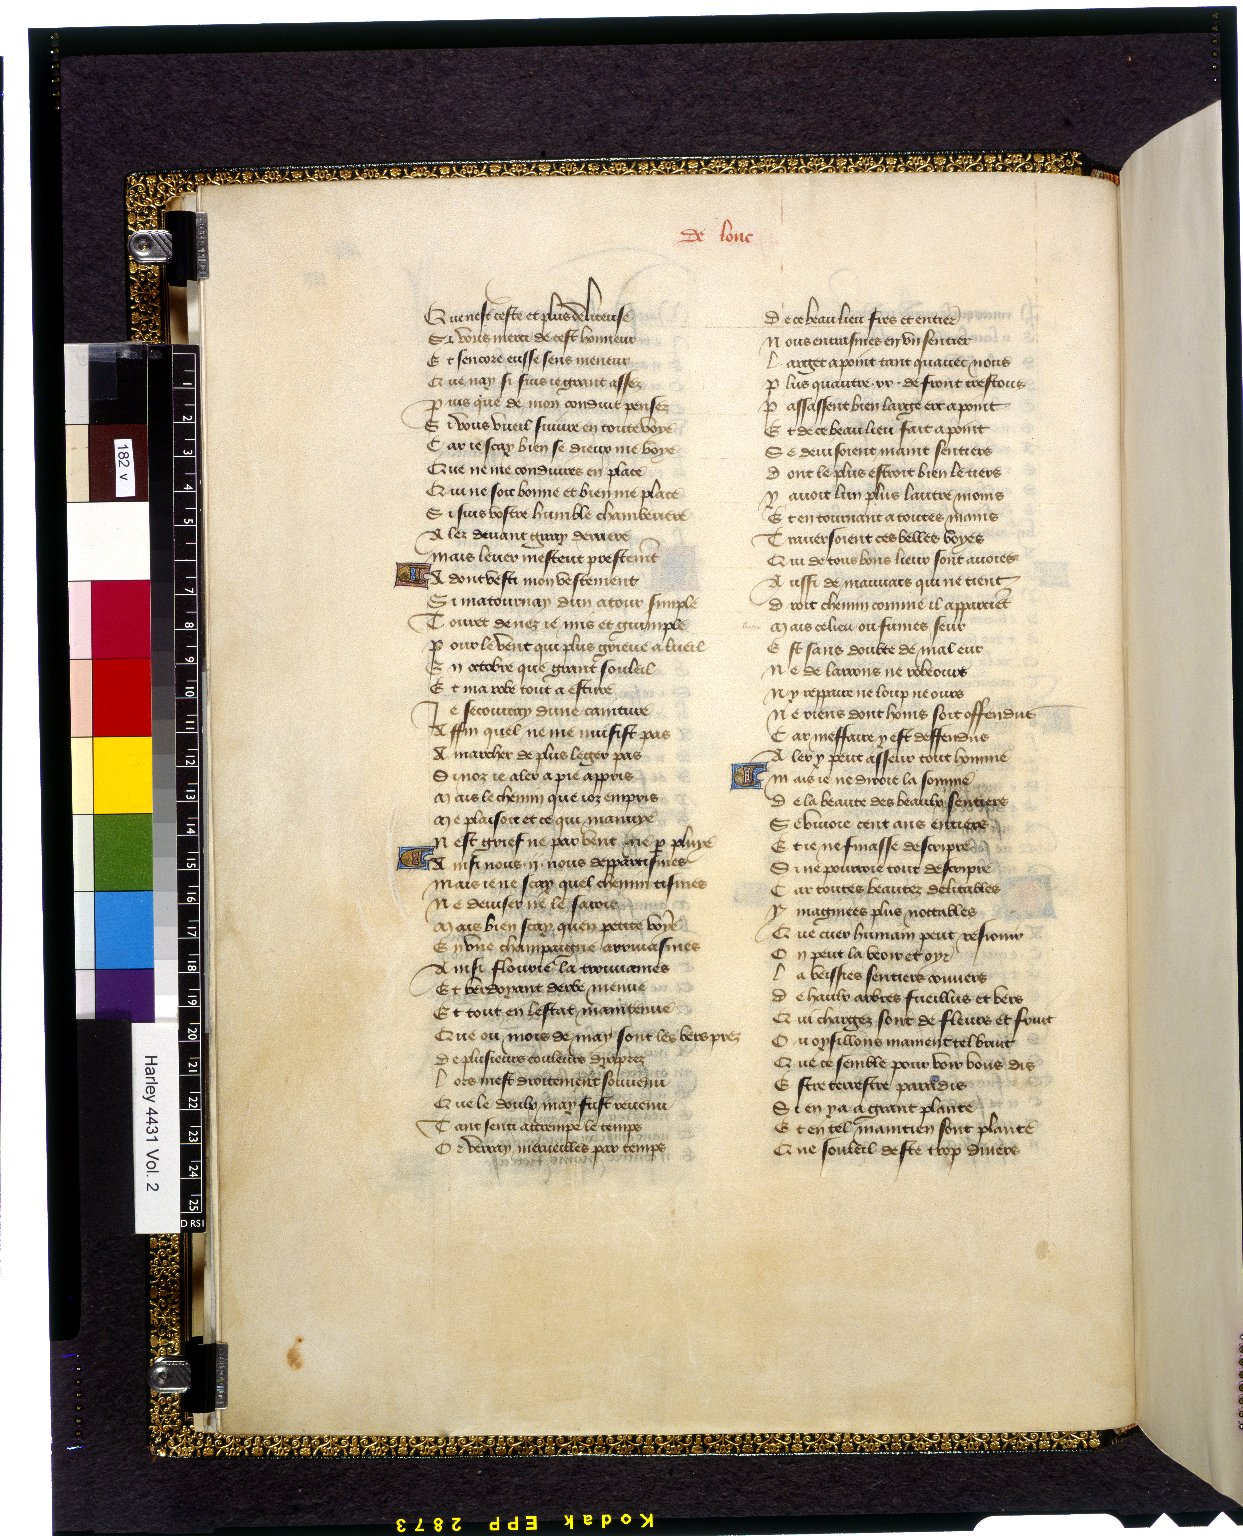 de lonc
Que nest ceste et plus deliteuse
Si vous merci de cest honneur
Et sencore eusse sens meneur
Que nay si suis ie grant assez
Puis que de mon conduit pensez
Si vous vueil suivre en toute voye
Car ie scay bien se dieux me voye
Que ne me conduires en place
Qui ne soit bonne et bien me place
Si suis vostre humble chamberiere
Alez devant giray derriere
Mais lever mesteut prestemēt
Adont vesti mon vestement
Si matournay dun atour simple
Touret de nez ie mis et guimple
Pour le vent qui plus grieve a lueil
En octobre que grant souleil
Et ma robe tout a esture
Je secourcay dune cainture
Affin quel ne me nuisist pas
A marcher de plus leger pas
Si noz ie aler a pie appris
Mais le chemin que ioz empris
Me plaisoit et ce qui manuye
Nest grief ne par vent ne ꝑ pluye
Ainsi nous .ii. nous departismes
Mais ie ne scay quel chemin tismes
Ne deviser ne le saroie
Mais bien scay quen petite voye
En une champaigne arrivasmes
Ainsi flourie la trouvames
Et verdoyant derbe menue
Et tout en lestat maintenue
Que ou mois de may sont les vers prez
De plusieurs couleurs dyaprez
Lors mest droitement souvenu
Que le doulx may fust revenu
Tant senti attrempe le temps
Or verray merveilles par temps
De ce beau lieu fres et entier
Nous entrasmes en un sentier
Large a point tant quavec nous
Plus quautre .xx. de front trestous
Passassent bien large ert a point
Et de ce beau lieu fait a point
Se devisoient maint sentiers
Dont le plus estroit bien le tiers
Y avoit lun plus lautre moins
Et en tournant a toutes mains
Traversoient ces belles voyes
Qui de tous bons lieux sont avoies
Aussi de mauvais qui ne tient
Droit chemin comme il appartiēt
Mais ce lieu ou fumes seur
Est sans doubte de mal eur
Ne de larrons ne robeours
Ny repaire ne loup ne ours
Ne riens dont homs soit offendus
Car meffaire y est deffendus
Aler y peut asseur tout homme
Mais ie ne diroie la somme
De la beaute des beaulx sentiers
Se vivoie cent ans entiers
Et ie ne finasse descripre
Si ne pourroie tout descripre
Car toutes beautez delitables
Ymaginees plus nottables
Que cuer humain peut resiouir
On peut la veoir et oyr
La veissies sentiers couvers
De haulx arbres fueillus et vers
Qui chargez sont de fleurs et fruit
Ou oysillons mainent tel bruit
Que ce semble pour voir vous dis
Estre terrestre paradis
Si en y a a grant plante
Et en tel maintien sont plante
Que souleil deste trop divers
182 v
Harley 4431 Vol. 2
1
2
3
4
5
6
7
8
9
10
11
12
13
14
15
16
17
18
19
20
21
22
23
24
25
Kodak EPP 2873